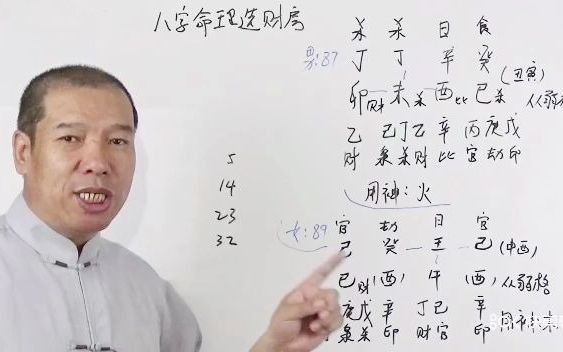 八字命理选财房
杀 杀 日 食
男:87 丁 丁 辛 癸 (丑寅)
卯财 未杀 酉比 巳杀 从弱格
乙 己丁乙 辛 丙庚戊
财 枭杀财 比 官劫印
用神:火
5
14
23
32
女:89 官 劫 日 官
己 癸 壬 己 (申酉)
巳财 (酉) 午 (酉) 从弱格
庚戊 辛 丁己 辛 用神
枭杀 印 财官 印